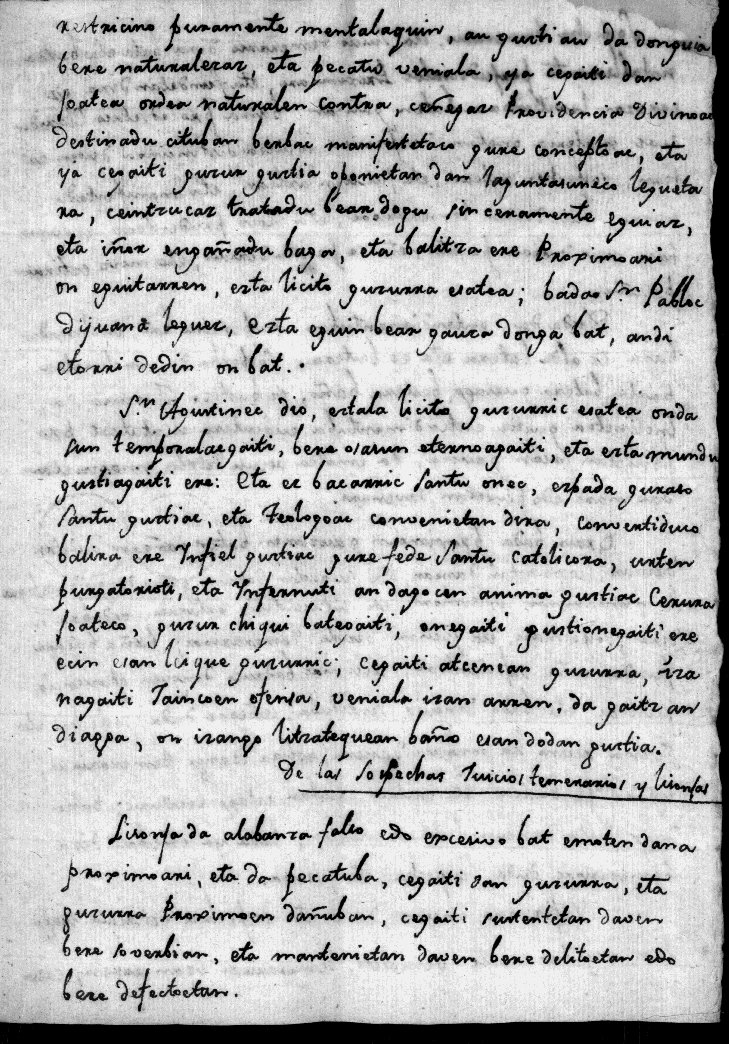 restricino puramente mentalaquin, au gusti au da donguia
bere naturalezaz, eta pecatu veniala, ya cegaiti dan
joatea ordea naturalen contra, ceñegaz Providencia Divinoac
destinadu cituban berbac manifestetaco gure conceptoac, eta
ya cegaiti guzur gustia oponietan dan laguntasuneco legueta
ra, ceintzucaz tratadu bear dogu sinceramente eguiaz,
eta iñor engañadu baga, eta balitza ere Proximoari
on eguitarren, ezta licito guzurra esatea; badao Sn. Pabloc
dijuana leguez, Ezta eguin bear gauza donga bat, andi
etorri dedin on bat.
Sn. Agustinec dio, eztala licito guzurric esatea onda
sun temporalacgaiti, bere osasun eternoagaiti, eta ezta mundu
gustiagaiti ere: Eta ez bacarric Santu onec, ezpada guraso
Santu gustiac, eta Teologoac convenietan dira, convertiduco
balira ere Infiel gustiac gure fede Santu catolicora, urten
purgatorioti, eta Infernuti an dagocen anima gustiac Cerura
joateco, guzur chiqui bategaiti, onegaiti gustionegaiti ere
ecin esan leique guzurric; cegaiti atcenean guzurra, iza
nagaiti Jaincoen ofensa, veniala izan arren, da gaitz an
diagoa, on izango litzatequean baño esan dodan gustia.
De las Sospechas Juicios temerarios y lisonjas
Lisonja da alabanza falso edo excesivo bat emoten dana
proximoari, eta da pecatuba, cegaiti dan guzurra, eta
guzurra Proximoen dañuban, cegaiti sustentetan daven
bere soverbian, eta mantenietan daven bere delitoetan edo
bere defectoetan.